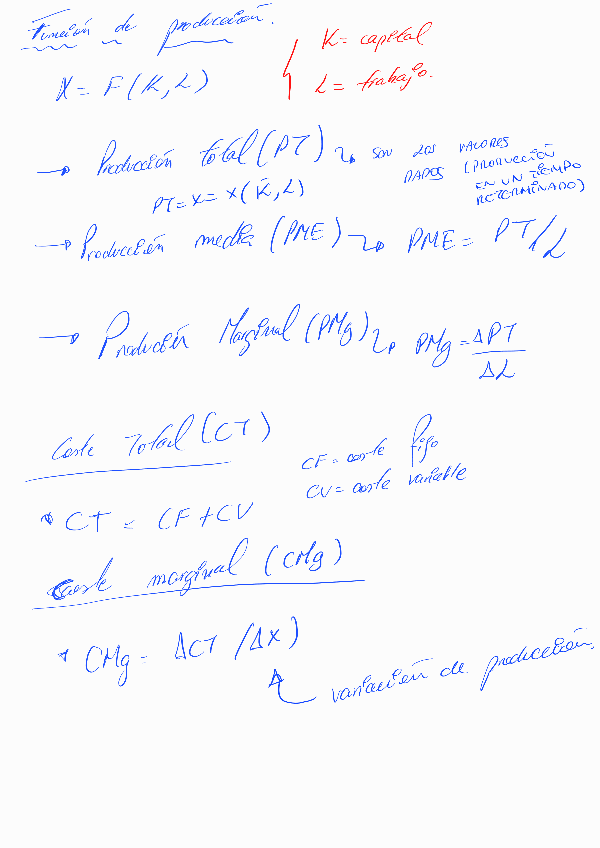 Función de producción.
K = capital
L = trabajo.
X = F(K, L)
→ Producción total (PT) → SON LOS VALORES
DADOS (PRODUCCIÓN
EN UN TIEMPO
DETERMINADO)
PT = X = X(K̄, L)
→ Producción media (PME) → PME = PT/L
→ Producción Marginal (PMg) → PMg = ΔPT/ΔL
Coste Total (CT)
CF = coste fijo
CV = coste variable
* CT = CF + CV
Coste marginal (CMg)
* CMg = ΔCT / ΔX)
variación de producción.